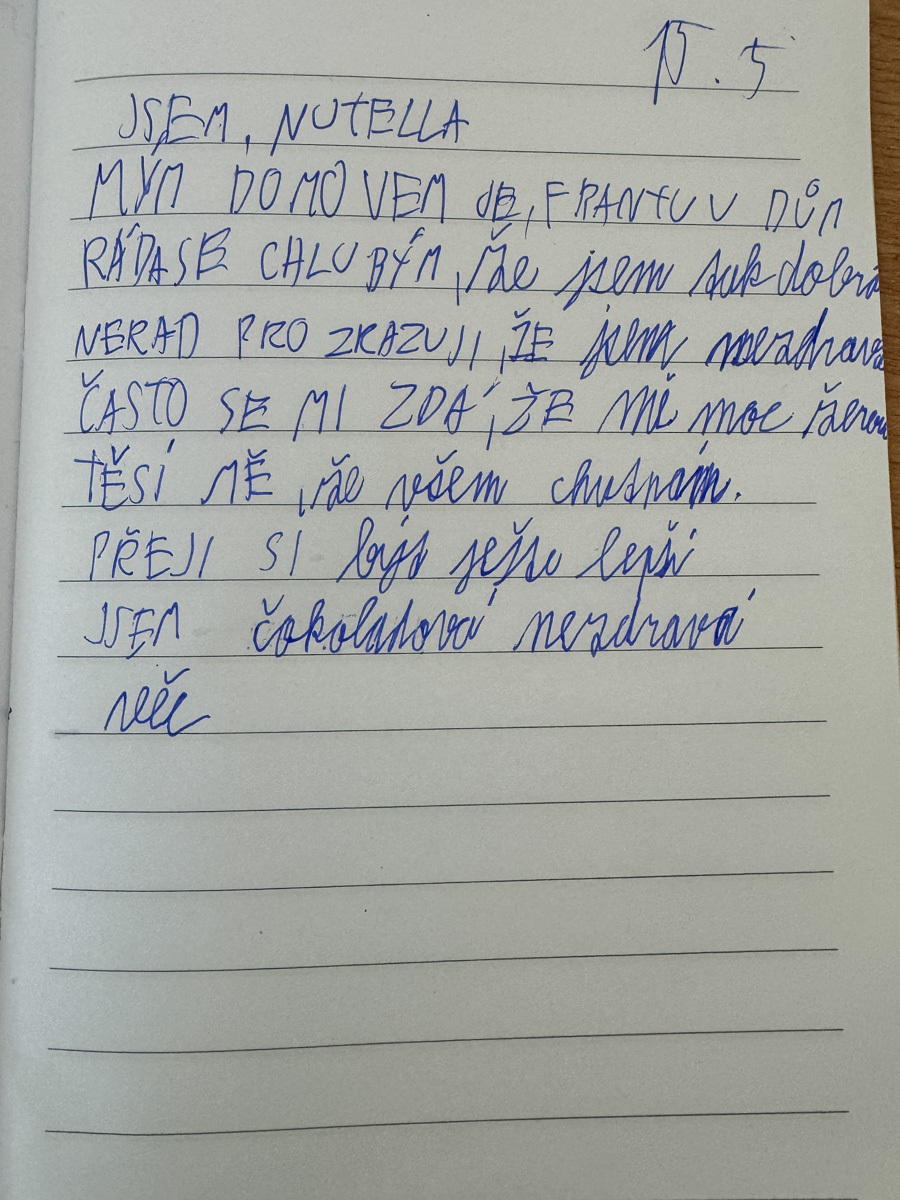 15.5
JSEM, NUTELLA
MÝM DOMOVEM JE, FRANTUV DŮM
RÁDASE CHLUBÝM, že jsem tak dobrá
NERAD PROZRAZUJI, ŽE jsem nezdravá
ČASTO SE MI ZDÁ, ŽE MĚ moc žerou
TĚSÍ MĚ, že všem chutnám.
PŘEJI SI být ještu lepší
JSEM čokoladová nezdravá
věc